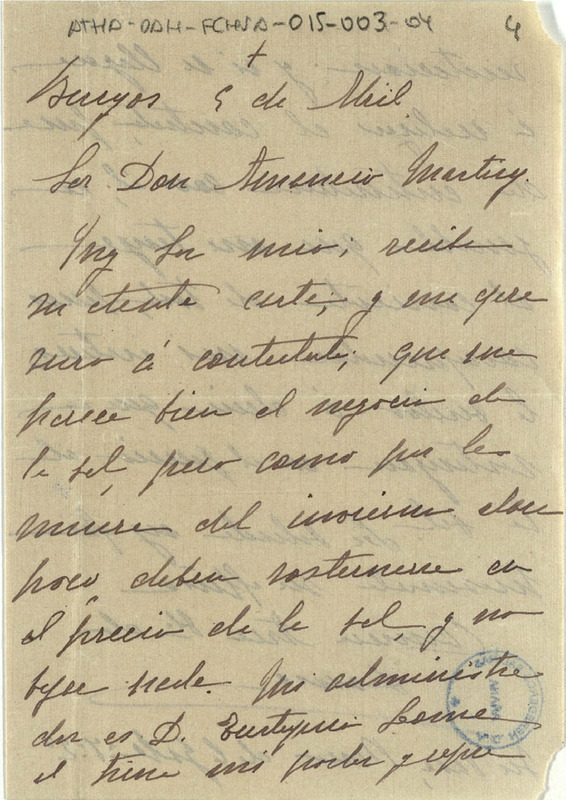 ATHA-DAH-FCHVA-015-003-04 4
+
Burgos 5 de Abril
Sor Don Amancio Martinez.
Muy Sor mio; recibi
su atenta carta, y me apre
suro á contestarle, que me
parece bien el negocio de
la sal, pero como por la
del invierno
poco deben sostenerse en
el precio de la sal, y no
bajar nada. Mi administra
dor es D. Eustaquio
el tiene mi poder y